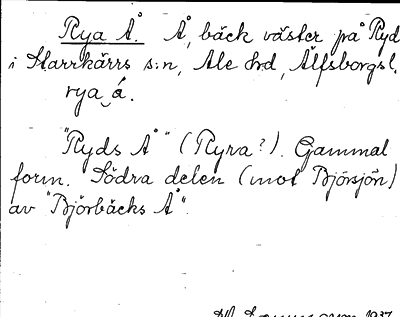 Rya Å. Å, bäck väster på Ryd
i Starrkärrs s:n, Ale hrd, Älfsborgs l.
rya á.
"Ryds Å" (Ryra?). Gammal
form. Södra delen (mot Björsjön)
av "Björbäcks Å".
1937